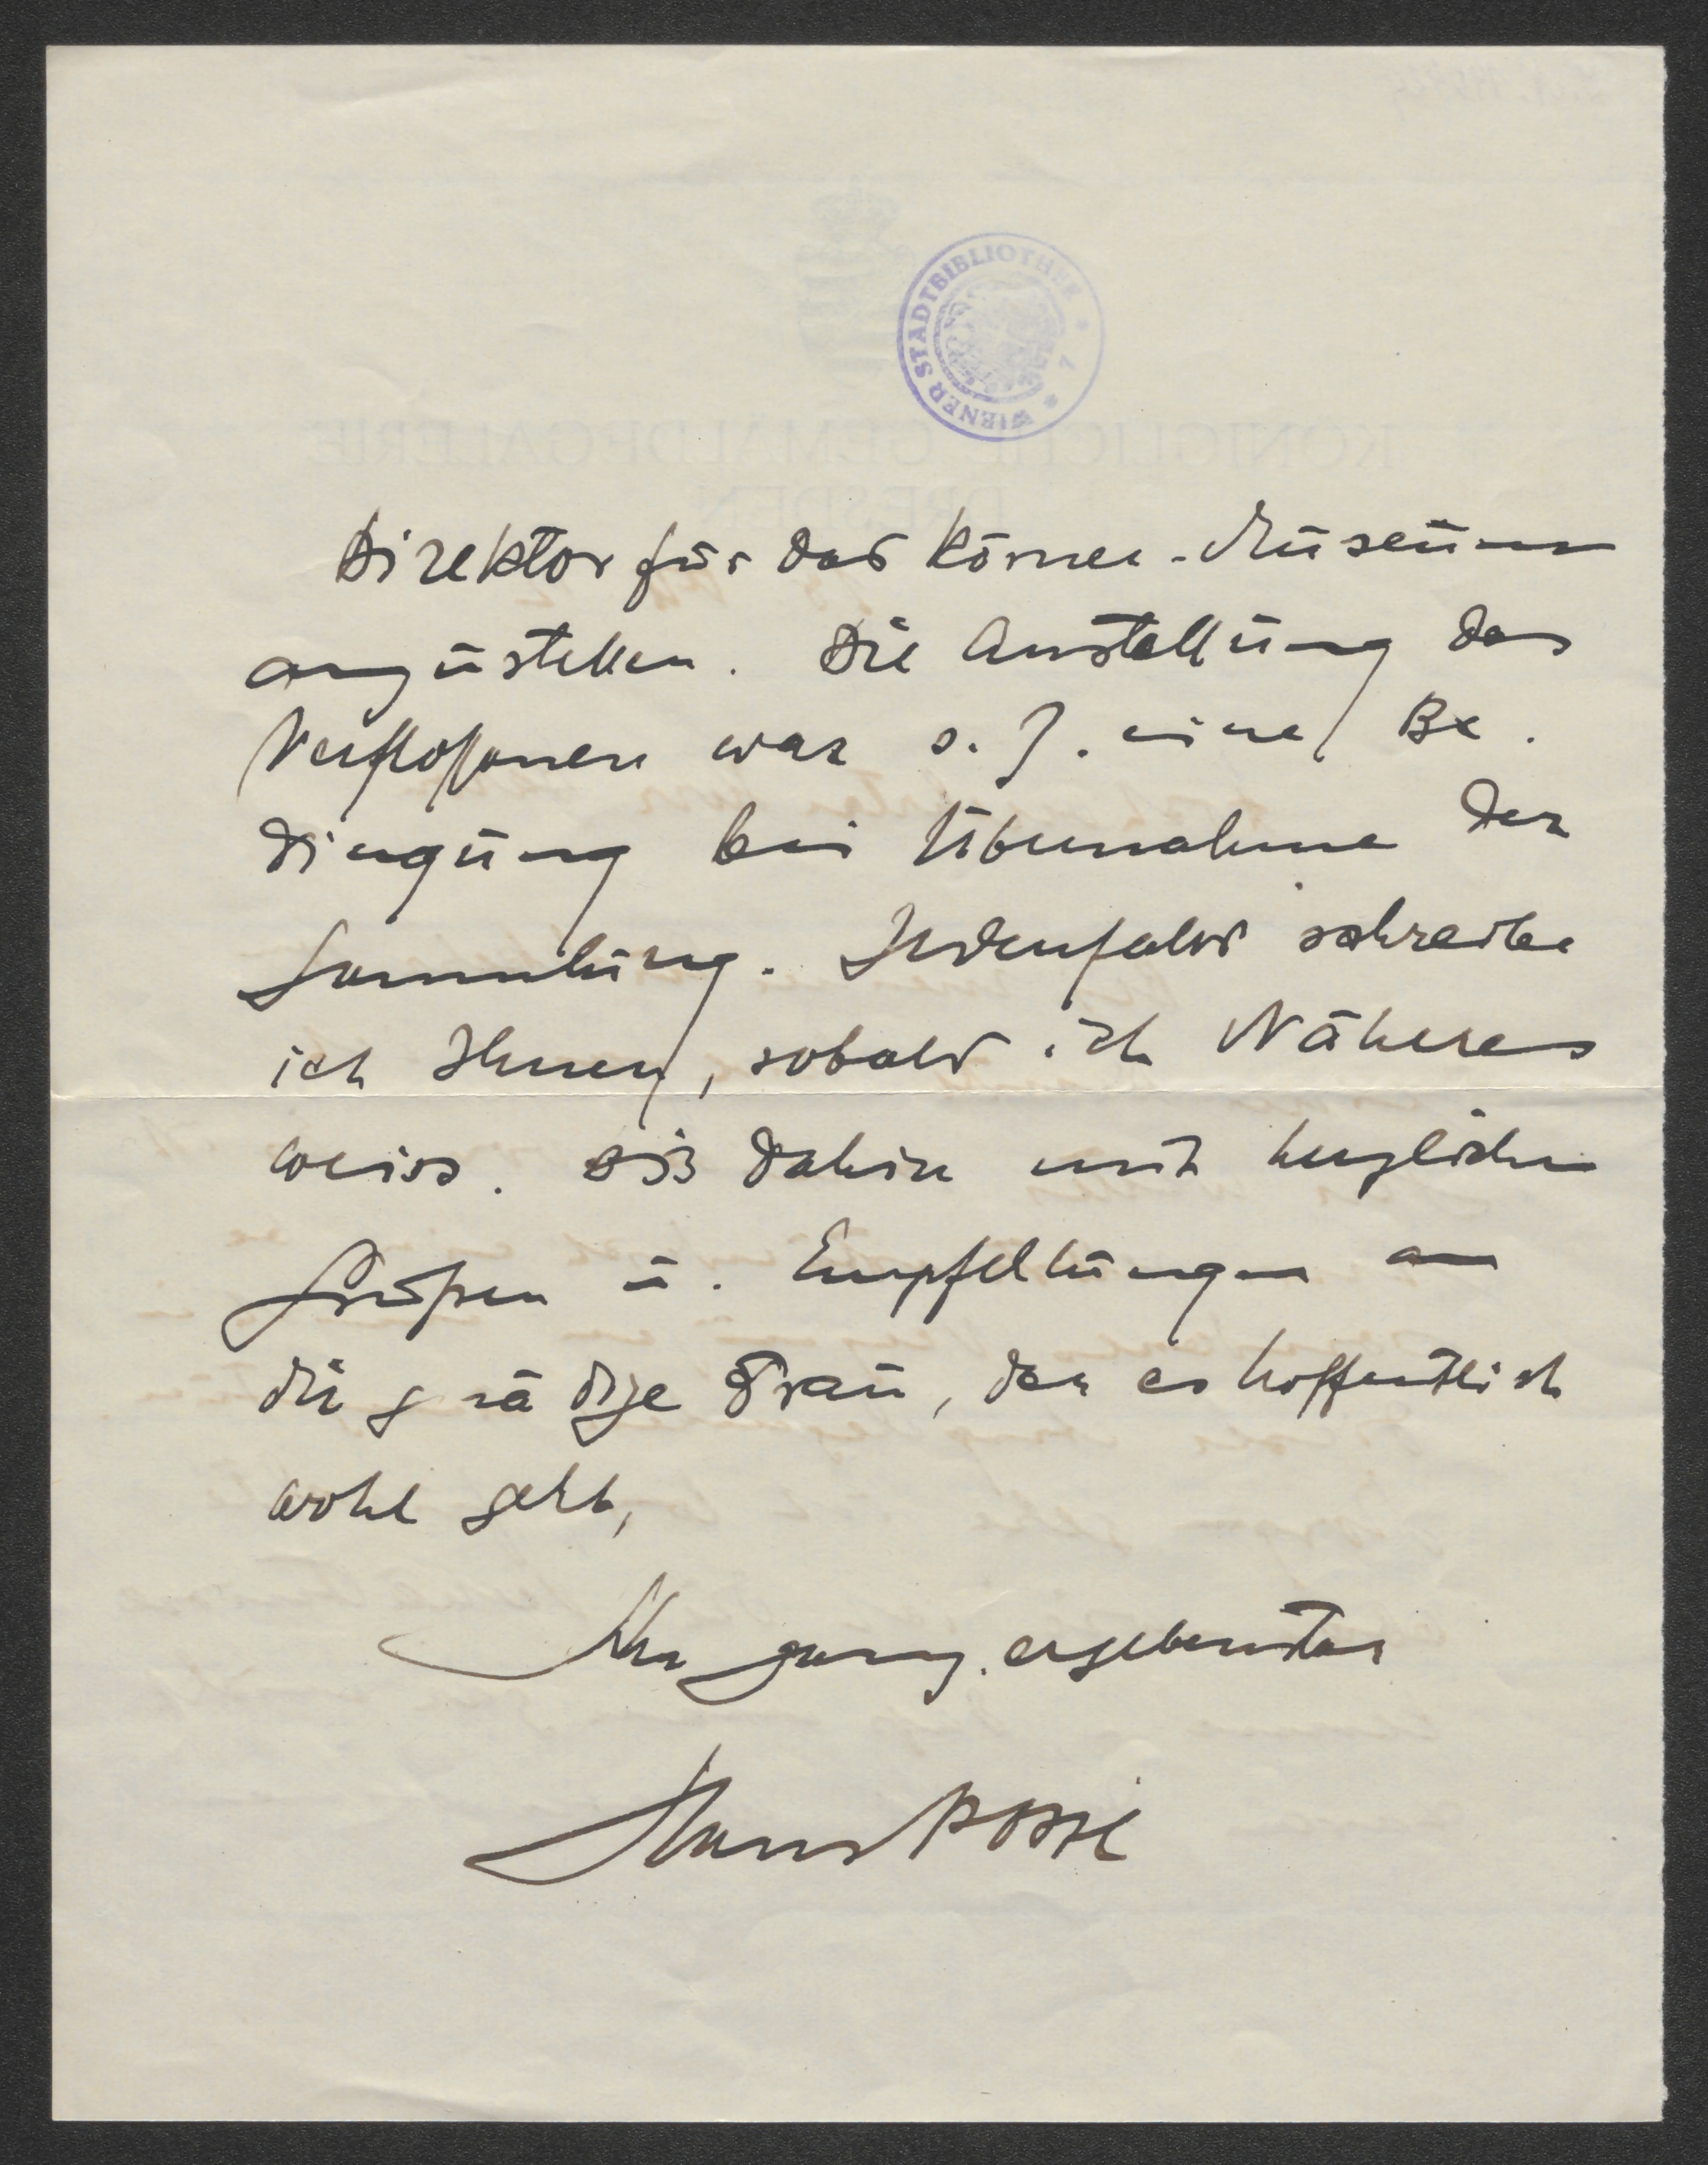 WIENER STADTBIBLIOTHEK * 7 *
Direktor für das Körner-Museum
anzustellen. Die Anstellung des
Verflossenen war s. Z. eine Be-
dingung bei Übernahme der
Sammlung. Jedenfalls schreibe
ich Ihnen, sobald ich Näheres
weiss. Bis dahin mit herzlichen
Grüßen u. Empfehlungen an
die gnädige Frau, der es hoffentlich
wohl geht,
Ihr ganz ergebenster
Hans Posse